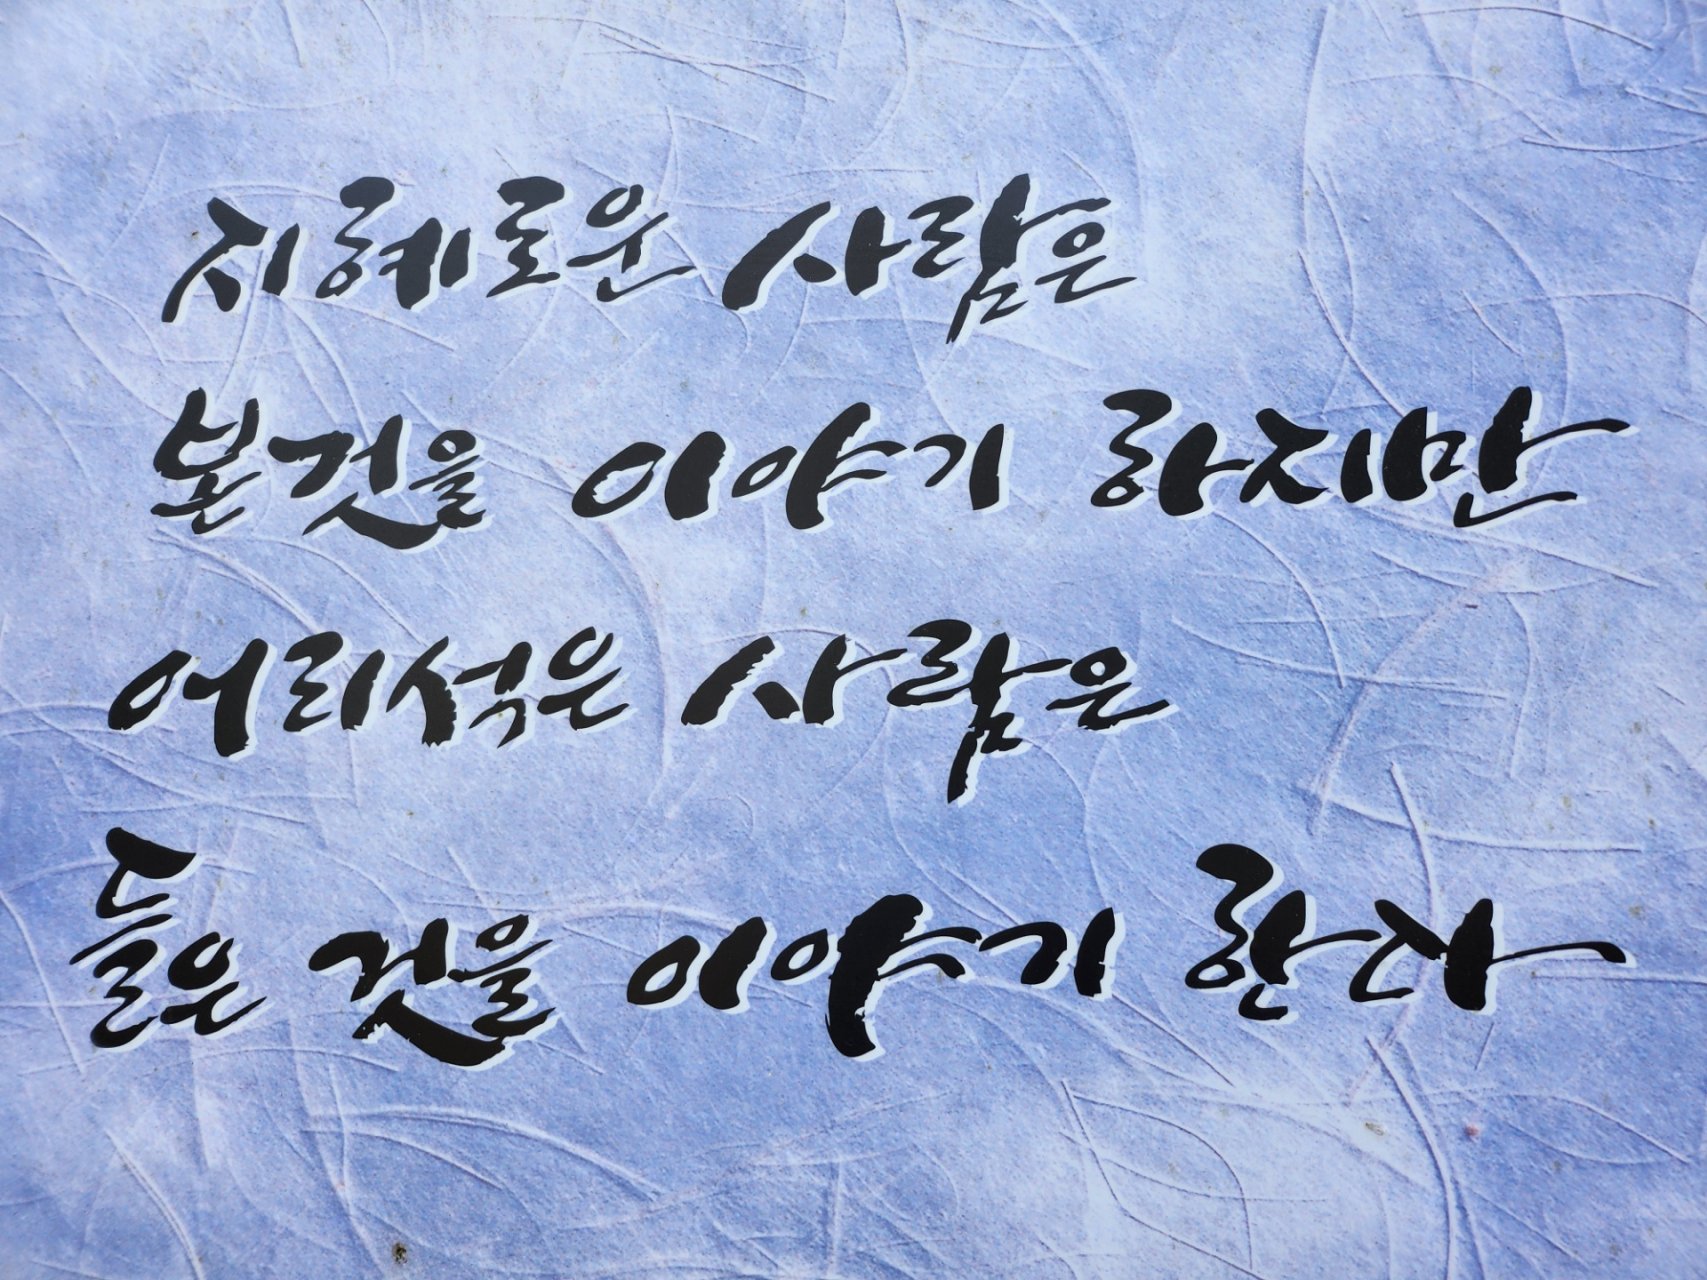 지혜로운 사람은
본것을 이야기 하지만
어리석은 사람은
들은 것을 이야기 한다